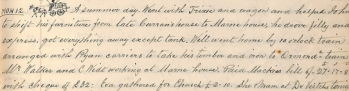 MON 12. A summer day. Went with Trevor and wagon and helped John
to shift his furniture from late Curran's house to Marne house, he drove Jilly and
express, got everything away except tank. Well went home by 10 o'clock train
arranged with Ryan carriers to take his timber and over to Ormond train
Mr. Walker and C. Kidd working at Marne House. Paid Mackies bill of 27-17-8
with cheque of £32. Eva gathered for Church £2-10.